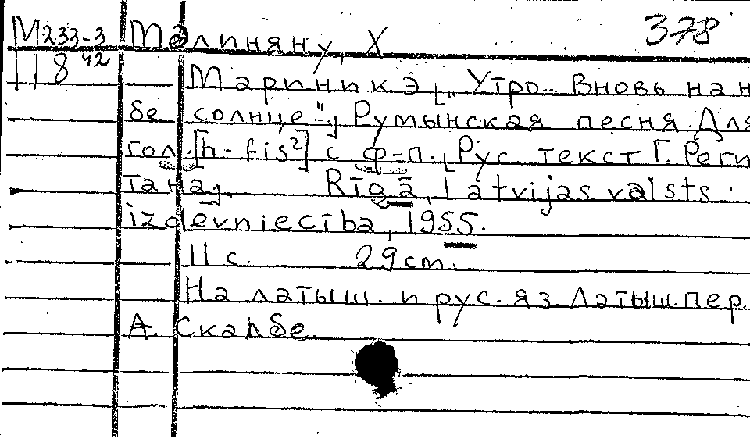 М 233-3 Малиняну, Х 378
118 42
Мариникэ [„ Утро. Вновь на н
бе солнце"]. Румынская песня. Для
гол. [h - fis²] с ф-п. [Рус. текст Г. Реги
тана]. Rīgā, Latvijas valsts
izdevniecība, 1955.
11 с. 29 cm.
На латыш. и рус. яз. Латыш. пер.
А. Скалбе.